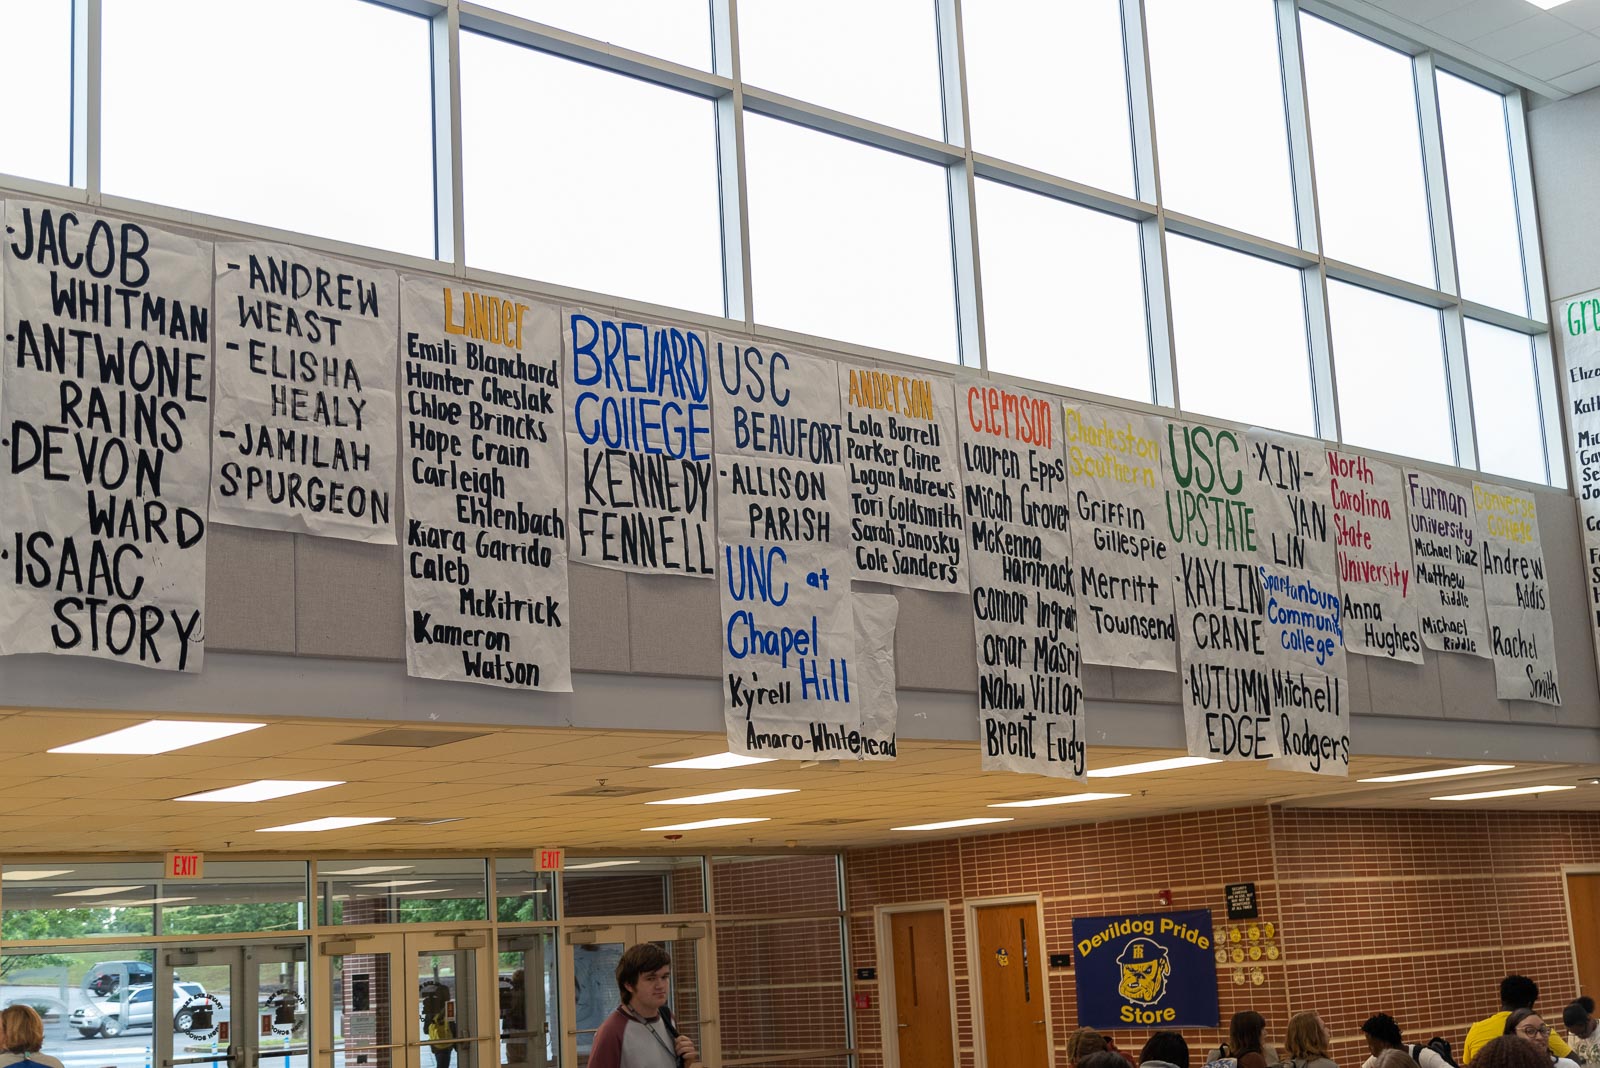 ·JACOB
WHITMAN
·ANTWONE
RAINS
·DEVON
WARD
·ISAAC
STORY
-ANDREW
WEAST
-ELISHA
HEALY
-JAMILAH
SPURGEON
LANDer
Emili Blanchard
Hunter Cheslak
Chloe Brincks
Hope Crain
Carleigh
Ehlenbach
Kiara Garrido
Caleb
McKitrick
Kameron
Watson
BREVARD
COllEGE
KENNEDY
FENNELL
USC
BEAUFORT
-ALLISON
PARISH
UNC at
Chapel
Hill
Ky'rell
Amaro-Whitehead
ANDERSON
Lola Burrell
Parker Cline
Logan Andrews
Tori Goldsmith
Sarah Janosky
Cole Sanders
Clemson
Lauren Epps
Micah Grover
McKenna
Hammack
Connor Ingram
Omar Masri
Nahw Villar
Brent Eudy
Charleston
Southern
Griffin
Gillespie
Merritt
Townsend
USC
UPSTATE
·KAYLIN
CRANE
·AUTUMN
EDGE
·XIN-
YAN
LIN
Spartanburg
Community
College
Mitchell
Rodgers
North
Carolina
State
University
Anna
Hughes
Furman
University
Michael Diaz
Matthew
Riddle
Michael
Riddle
Converse
College
Andrew
Addis
Rachel
Smith
Gre
Eliza
Kath
EXIT
EXIT
Devildog Pride
Store